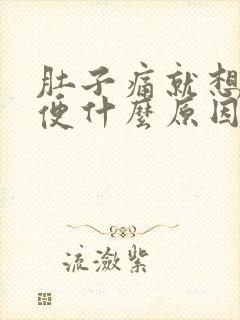 肚子痛就想
便什麼原因
流瀲紫